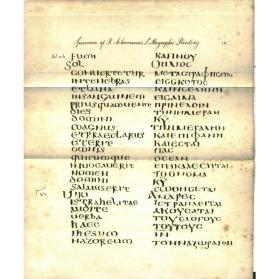 Specimen of R. Ackermann's Lithographic Printing
FUMI ΚΑΠΝΟΥ
SOL ΟΗΛΙΟC
CONUERTETUR ΜΕΤΑCΤΡΑΦΗCΕΤΑΙ
INTENEBRAS ΕΙCCΚΟΤΟC
ETLUNA ΚΑΙΗCΕΛΗΝΗ
INSANGUINEM ΕΙCΑΙΜΑ
PRIUSQUAMUENIAT ΠΡΙΝΕΛΘΙΝ
DIES ΤΗΝΗΜΕΡΑΝ
DOMINI ΚΥ
MAGNUS ΤΗΝΜΕΓΑΛΗΝ
ETPRAECLARUS ΚΑΙΕΠΙΦΑΝΗ
ETERIT ΚΑΙΕCΤΑΙ
OMNIS ΠΑC
QUICUMQUE ΟCΕΑΝ
INUOCAUERIT ΕΠΙΚΑΛΕCΗΤΑΙ
NOMEN ΤΟΟΝΟΜΑ
DOMINI ΚΥ
SALUUSERIT CΩΘΗCΕΤΑΙ
UIRI ΑΝΔΡΕC
ISTRAHELITAE ΙCΤΡΑΗΛΕΙΤΑΙ
AUDITE ΑΚΟΥCΑΤΑΙ
UERBA ΤΟΥCΛΟΓΟΥC
HAEC ΤΟΥΤΟΥC
IHESUM ΙΝ
NAZOREUM ΤΟΝΝΑΖΩΡΑΙΟΝ